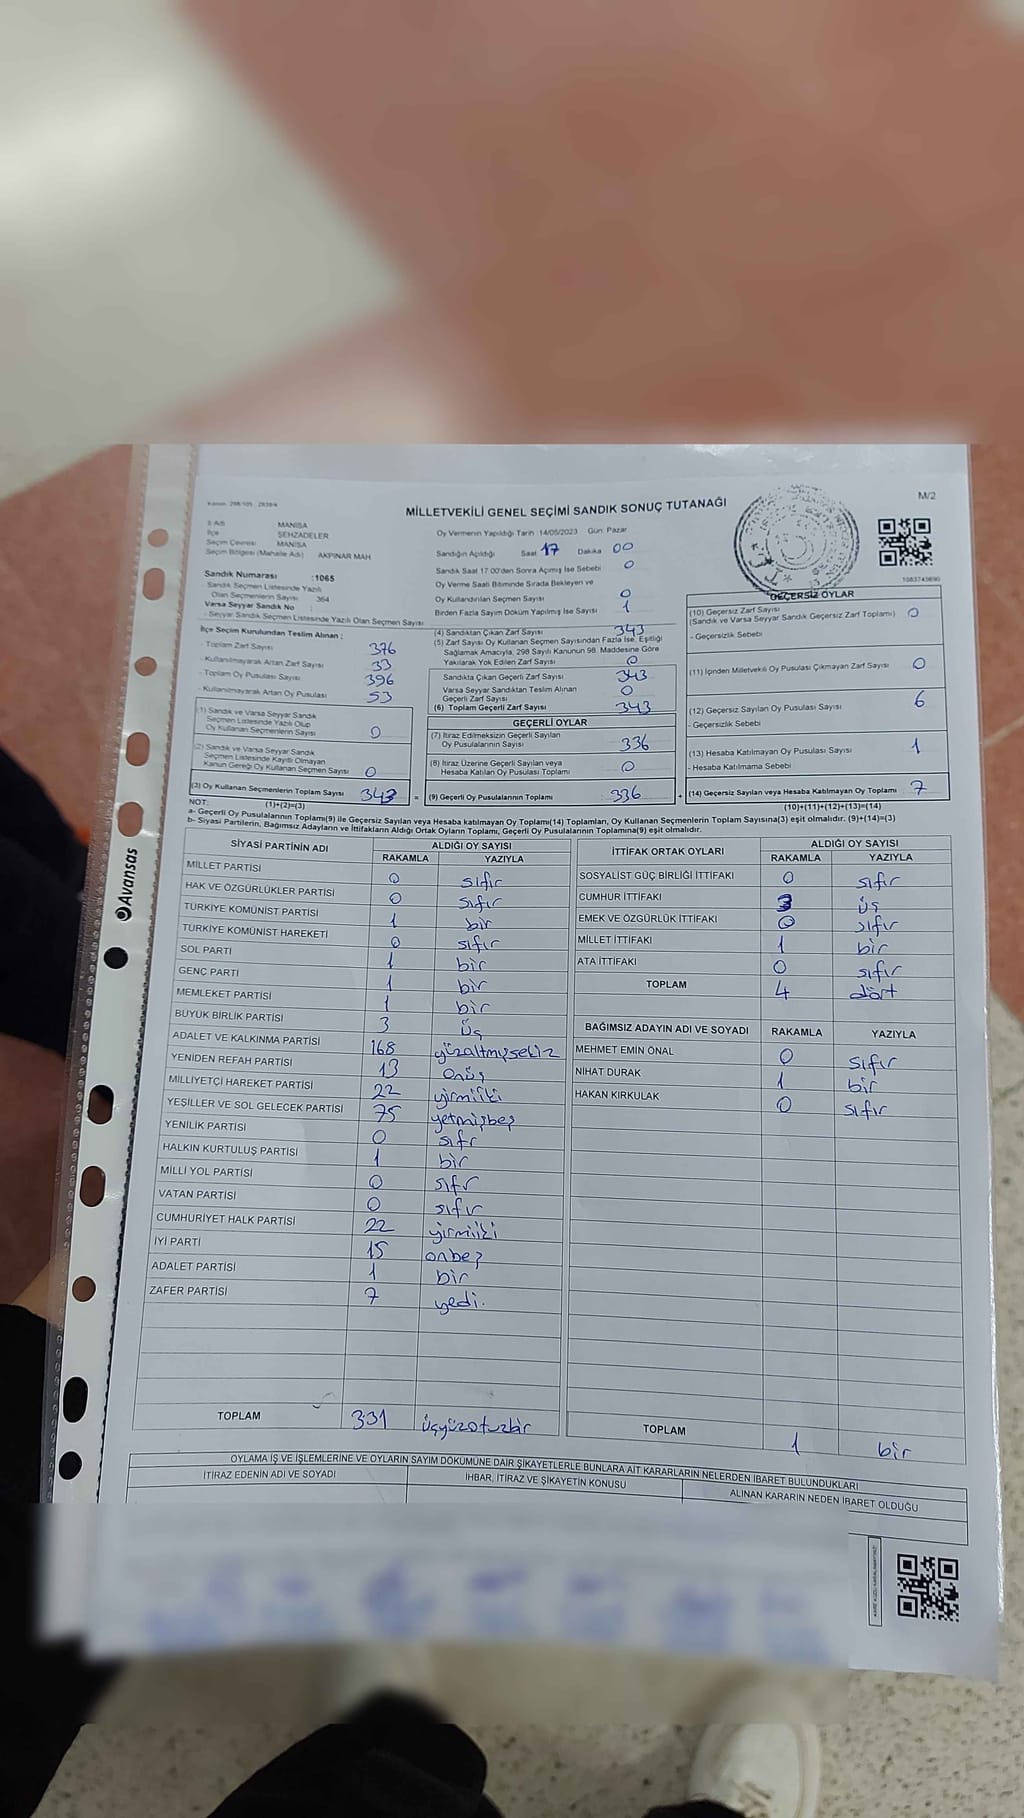 Kanun: 298/105 , 2839/4
M/2
MİLLETVEKİLİ GENEL SEÇİMİ SANDIK SONUÇ TUTANAĞI
İl Adı MANİSA
İlçe ŞEHZADELER
Seçim Çevresi MANİSA
Seçim Bölgesi (Mahalle Adı) AKPINAR MAH.
Oy Vermenin Yapıldığı Tarih 14/05/2023 Gün: Pazar
Sandığın Açıldığı Saat 17 Dakika 00
Sandık Saat 17.00'den Sonra Açılmış İse Sebebi 0
Oy Verme Saati Bitiminde Sırada Bekleyen ve
Oy Kullandırılan Seçmen Sayısı 0
Birden Fazla Sayım Döküm Yapılmış İse Sayısı 1
1083745690
Sandık Numarası :1065
- Sandık Seçmen Listesinde Yazılı
Olan Seçmenlerin Sayısı 364
Varsa Seyyar Sandık No :
- Seyyar Sandık Seçmen Listesinde Yazılı Olan Seçmen Sayısı:
İlçe Seçim Kurulundan Teslim Alınan ;
- Toplam Zarf Sayısı 376
- Kullanılmayarak Artan Zarf Sayısı 33
- Toplam Oy Pusulası Sayısı 396
- Kullanılmayarak Artan Oy Pusulası 53
(1) Sandık ve Varsa Seyyar Sandık
Seçmen Listesinde Yazılı Olup
Oy Kullanan Seçmenlerin Sayısı 0
(2) Sandık ve Varsa Seyyar Sandık
Seçmen Listesinde Kayıtlı Olmayan
Kanun Gereği Oy Kullanan Seçmen Sayısı 0
(3) Oy Kullanan Seçmenlerin Toplam Sayısı 343 =
(4) Sandıktan Çıkan Zarf Sayısı 343
(5) Zarf Sayısı Oy Kullanan Seçmen Sayısından Fazla İse, Eşitliği
Sağlamak Amacıyla, 298 Sayılı Kanunun 98. Maddesine Göre
Yakılarak Yok Edilen Zarf Sayısı 0
Sandıkta Çıkan Geçerli Zarf Sayısı 343
Varsa Seyyar Sandıktan Teslim Alınan
Geçerli Zarf Sayısı 0
(6) Toplam Geçerli Zarf Sayısı 343
GEÇERLİ OYLAR
(7) İtiraz Edilmeksizin Geçerli Sayılan
Oy Pusulalarının Sayısı 336
(8) İtiraz Üzerine Geçerli Sayılan veya
Hesaba Katılan Oy Pusulası Toplamı 0
(9) Geçerli Oy Pusulalarının Toplamı 336 +
GEÇERSİZ OYLAR
(10) Geçersiz Zarf Sayısı 0
(Sandık ve Varsa Seyyar Sandık Geçersiz Zarf Toplamı)
- Geçersizlik Sebebi
(11) İçinden Milletvekili Oy Pusulası Çıkmayan Zarf Sayısı 0
(12) Geçersiz Sayılan Oy Pusulası Sayısı 6
- Geçersizlik Sebebi
(13) Hesaba Katılmayan Oy Pusulası Sayısı 1
- Hesaba Katılmama Sebebi
(14) Geçersiz Sayılan veya Hesaba Katılmayan Oy Toplamı 7
NOT: (1)+(2)=(3) (10)+(11)+(12)+(13)=(14)
a- Geçerli Oy Pusulalarının Toplamı(9) ile Geçersiz Sayılan veya Hesaba Katılmayan Oy Toplamı(14) Toplamları, Oy Kullanan Seçmenlerin Toplam Sayısına(3) eşit olmalıdır. (9)+(14)=(3)
b- Siyasi Partilerin, Bağımsız Adayların ve İttifakların Aldığı Ortak Oyların Toplamı, Geçerli Oy Pusulalarının Toplamına(9) eşit olmalıdır.
SİYASİ PARTİNİN ADI ALDIĞI OY SAYISI
RAKAMLA YAZIYLA
MİLLET PARTİSİ 0 sıfır
HAK VE ÖZGÜRLÜKLER PARTİSİ 0 sıfır
TÜRKİYE KOMÜNİST PARTİSİ 1 bir
TÜRKİYE KOMÜNİST HAREKETİ 0 sıfır
SOL PARTİ 1 bir
GENÇ PARTİ 1 bir
MEMLEKET PARTİSİ 1 bir
BÜYÜK BİRLİK PARTİSİ 3 üç
ADALET VE KALKINMA PARTİSİ 168 yüzaltmışsekiz
YENİDEN REFAH PARTİSİ 13 onüç
MİLLİYETÇİ HAREKET PARTİSİ 22 yirmiiki
YEŞİLLER VE SOL GELECEK PARTİSİ 75 yetmişbeş
YENİLİK PARTİSİ 0 sıfr
HALKIN KURTULUŞ PARTİSİ 1 bir
MİLLİ YOL PARTİSİ 0 sıfr
VATAN PARTİSİ 0 sıfır
CUMHURİYET HALK PARTİSİ 22 yirmiiki
İYİ PARTİ 15 onbeş
ADALET PARTİSİ 1 bir
ZAFER PARTİSİ 7 yedi.
TOPLAM 331 üçyüzotuzbir
İTTİFAK ORTAK OYLARI ALDIĞI OY SAYISI
RAKAMLA YAZIYLA
SOSYALİST GÜÇ BİRLİĞİ İTTİFAKI 0 sıfır
CUMHUR İTTİFAKI 3 üç
EMEK VE ÖZGÜRLÜK İTTİFAKI 0 sıfır
MİLLET İTTİFAKI 1 bir
ATA İTTİFAKI 0 sıfır
TOPLAM 4 dört
BAĞIMSIZ ADAYIN ADI VE SOYADI RAKAMLA YAZIYLA
MEHMET EMİN ÖNAL 0 sıfır
NİHAT DURAK 1 bir
HAKAN KIRKULAK 0 sıfır
TOPLAM 1 bir
OYLAMA İŞ VE İŞLEMLERİNE VE OYLARIN SAYIM DÖKÜMÜNE DAİR ŞİKAYETLERLE BUNLARA AİT KARARLARIN NELERDEN İBARET BULUNDUKLARI
İTİRAZ EDENİN ADI VE SOYADI İHBAR, İTİRAZ VE ŞİKAYETİN KONUSU ALINAN KARARIN NEDEN İBARET OLDUĞU
Avansas